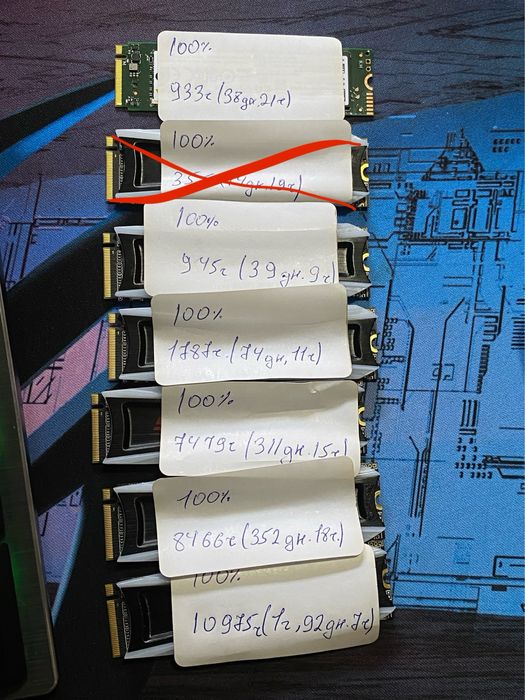 100%
933ч(38дн.21ч)
100%
100%
945ч(39дн.9ч)
100%
1787ч.(74дн,11ч)
100%
7479ч(311дн.15ч)
100%
8466ч(352дн.18ч.)
100%
10975ч(1г,92дн.7ч)